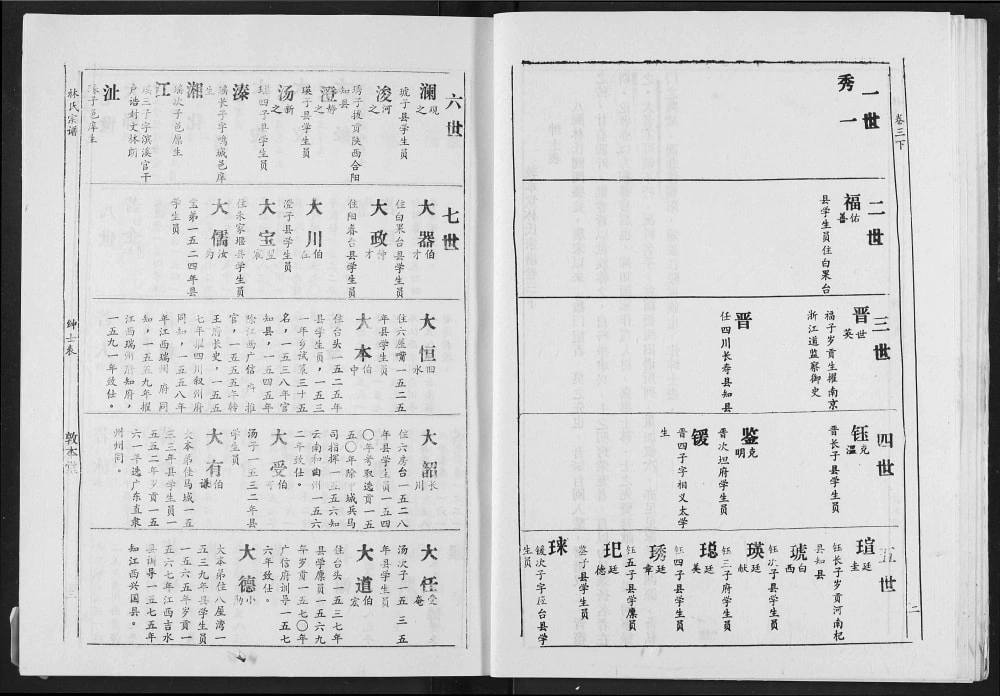 卷三下
一世
秀一
二世
福
佑善
县学生员住白果台
三世
晋
世英
福子岁贡生擢南京
浙江道监察御史
晋
任四川长寿县知县
四世
钰
克温
晋长子县学生员
鉴
克明
晋次 府学生员
锾
晋四子字相义太学
生
五世
瑄
廷圭
钰长子岁贡河南杞
县知县
琥
廷西
瑛
廷献
钰次子县学生员
琨
廷美
钰三子府学生员
琇
廷章
钰四子县学生员
玘
廷德
钰五子县学廪员
琜
鉴子县学生员
锾次子字 台县学
生员
二
六世
澜
观之
琥子县学生员
浚
河之
琇子拔贡陕西合阳
知县
澄
静之
瑛子县学生员
汤
新之
琨四子县学生员
溱
瑶长子字鸣城邑庠
生
湘
瑶次子邑庠生
江
瑶三子字滨溪官千
户诰封文林郎
沚
子邑庠生
七世
大器
伯才
住白果台县学生员
大政
仲才
住阳春台县学生员
大川
伯在
澄子县学生员
大宝
住朱家堰县学生员
大儒
汝为
宝弟一五二四年县
学生员
大恒
四永
住六屋嘴一五二五
年县学生员
大本
伯中
住台头一五二五年
县学生员，一五三
一年乡试第三十五
名，一五三八年官
知县，一五四五年
除江西广信府推
官，一五五五年转
王府长史，一五五
七年擢四川叙州府
同知，一五五八年
年江西瑞州府同
知，一五五九年擢
江西瑞州府知府，
一五九一年致仕。
大韶
长川
住六房台一五二八
年县学生员一五四
〇年考取选贡一五
五〇年除 城兵马
司指挥一五五六知
云南和曲州一五六
二年致仕。
大受
伯可
汤子一五三二年县
学生员
大有
伯谦
大本弟住马城一五
三三年县学生员一
五五二年岁贡一五
六一年选广东直隶
州州同。
大任
受庵
汤次子一五三五
年县学生员
大道
伯宏
住台头一五三七年
县学廪员一五六九
年岁贡一五七〇年
广信府训导一五七
六年致仕。
大德
小勋
大本弟住八屋湾一
五三九年县学生员
一五六五年岁贡一
五六七年江西吉水
县训导一五七五年
知江西兴国县。
林氏宗谱
绅士表
敦本堂